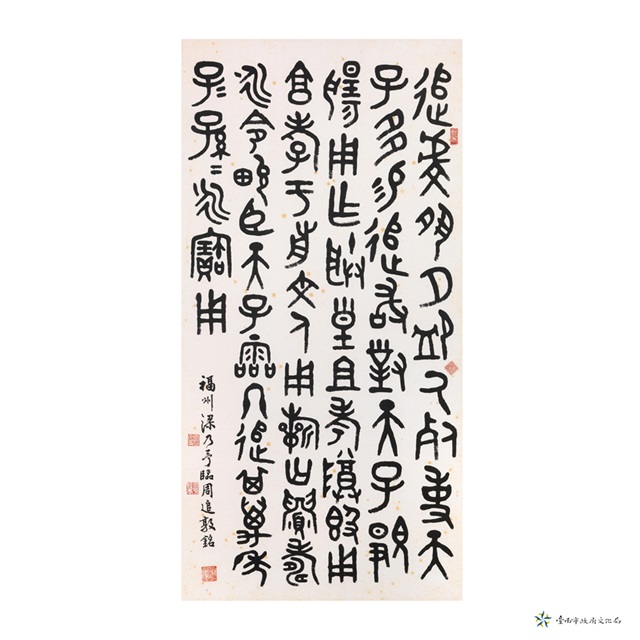 追虔夙夕卹厥死事天
子多易追敢對天子顯
揚用乍朕皇且考尊𣪘用
亯孝于前文人用祈匄眉壽
永令畯臣天子霝冬追其萬年
子二孫二永寶用
福州梁乃予臨周追敦銘
臺南市政府文化局